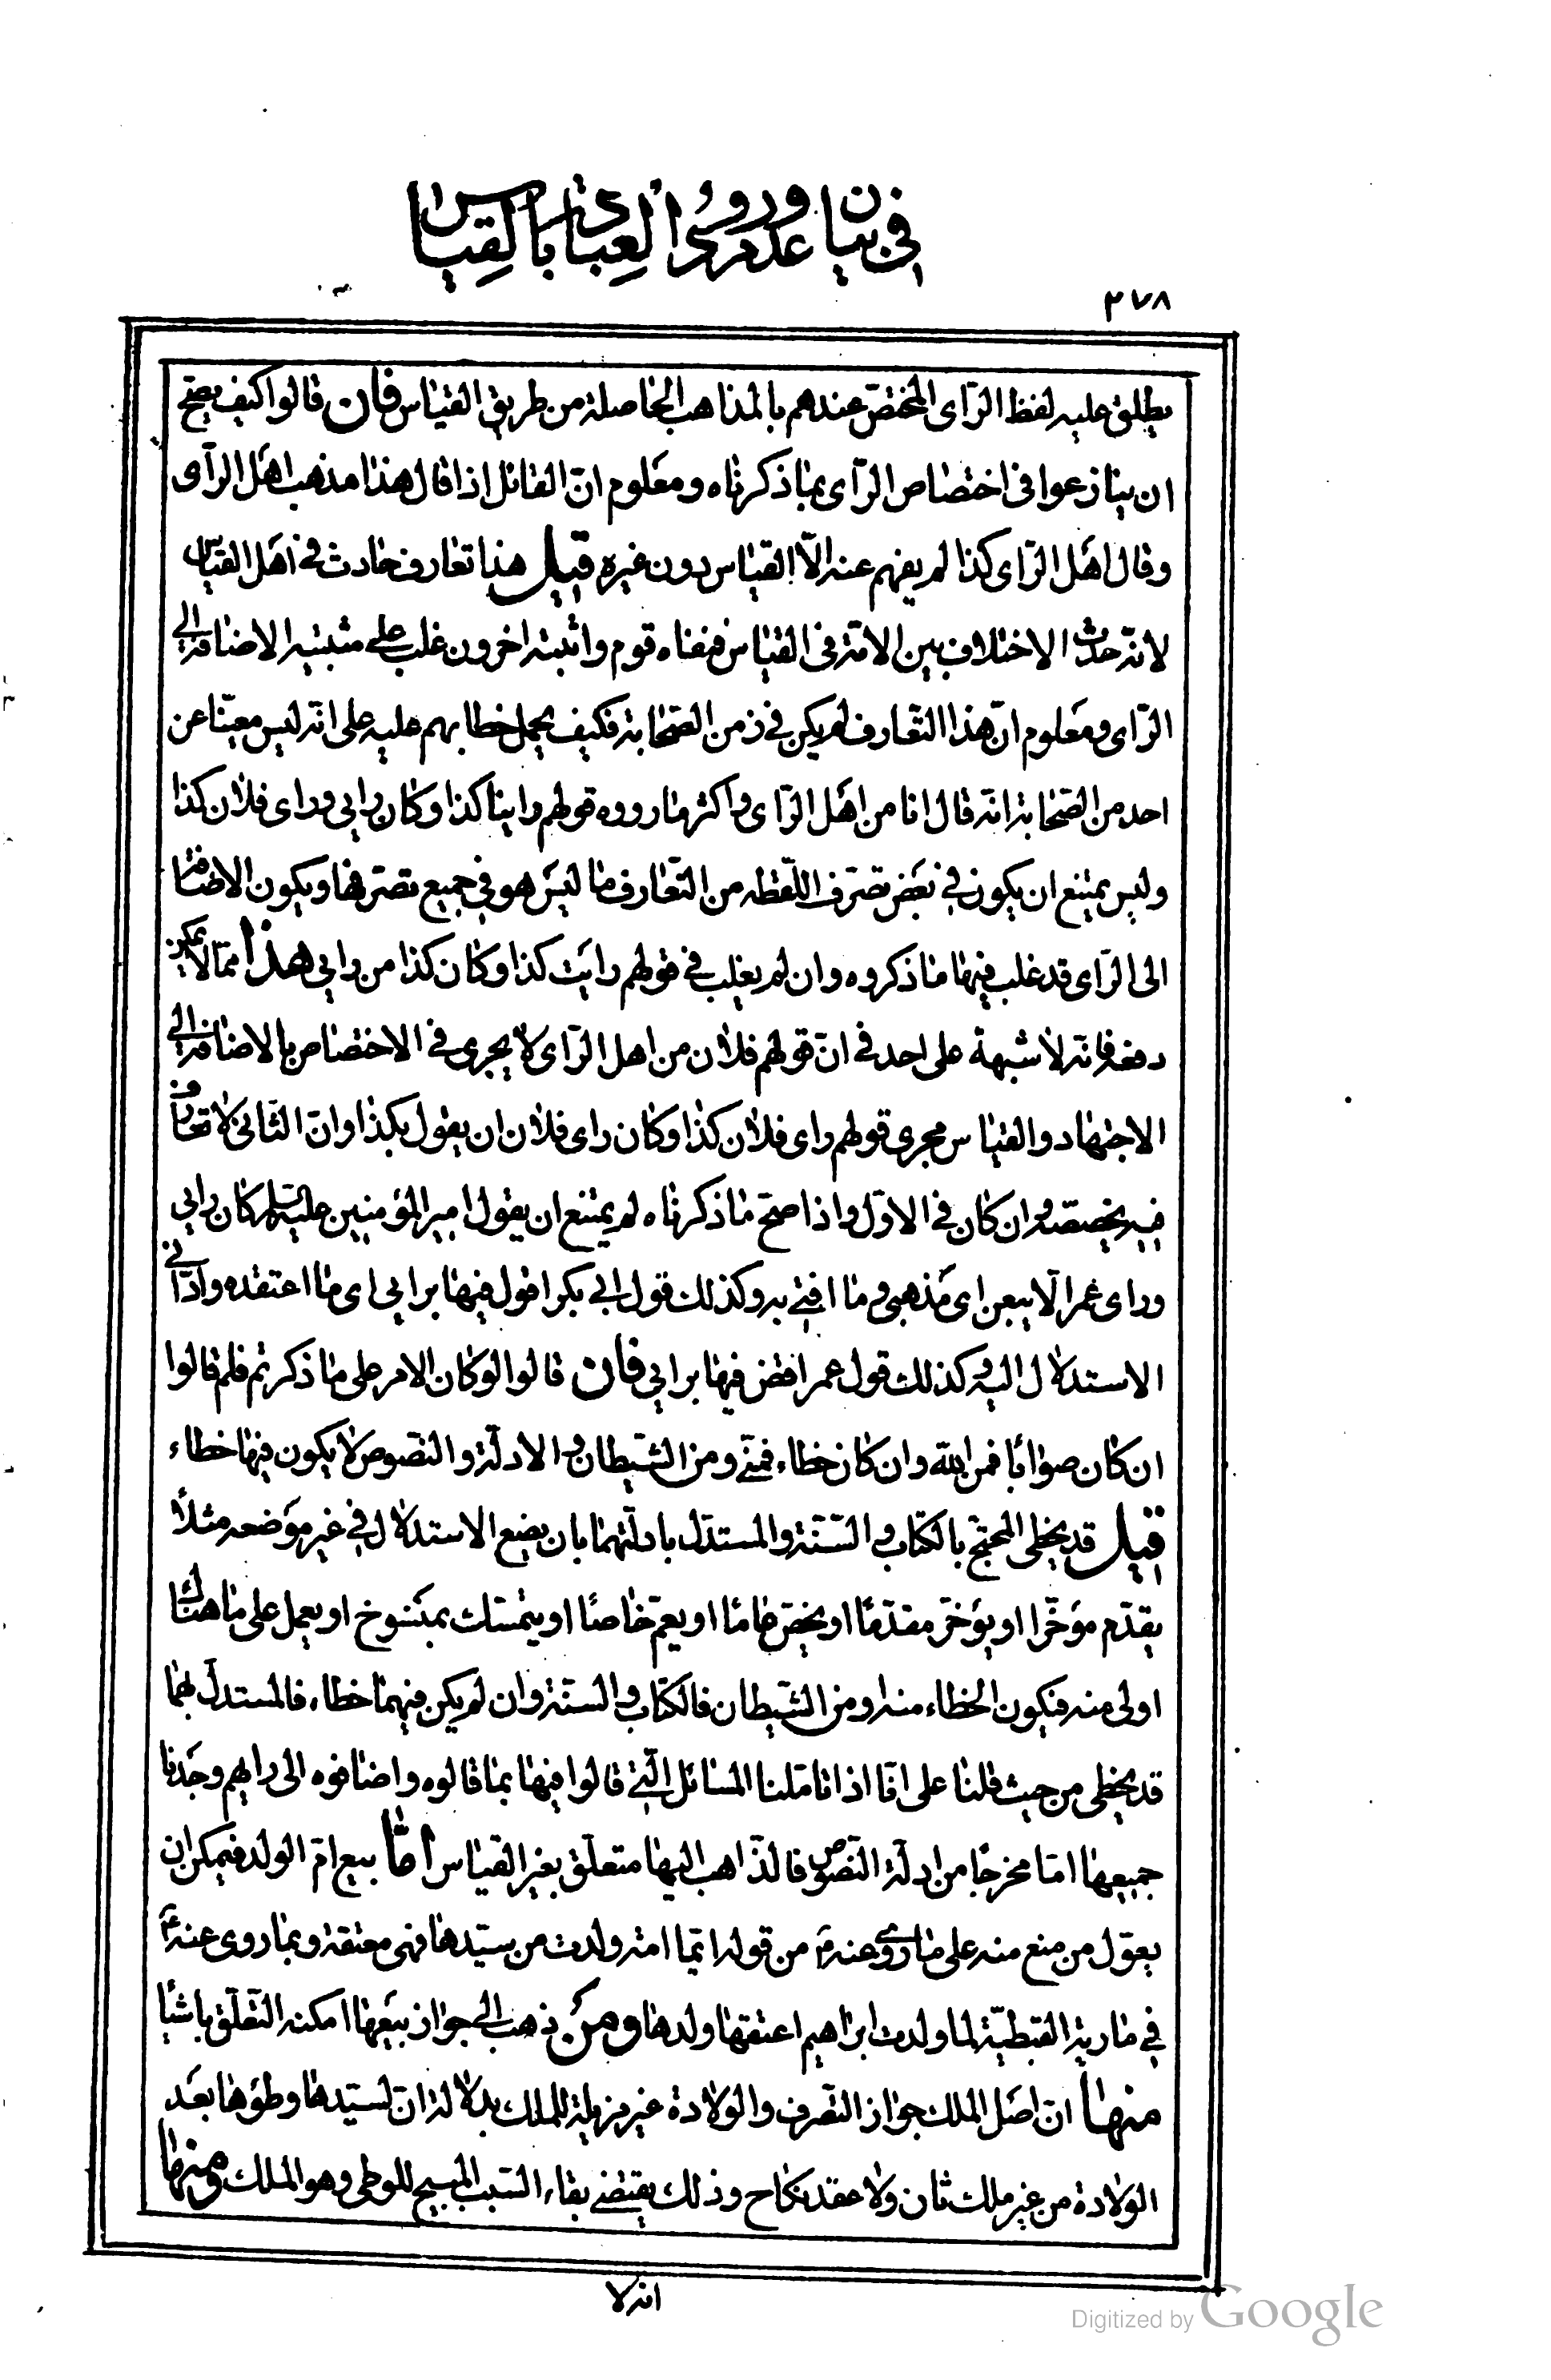 في بيان عدم ورود العبادة بالقياس
٢٧٨
يطلق عليه لفظ الرّاى المختصّ عندهم بالمذاهب الحاصلة من طريق القياس فان قالوا كيف يصحّ
ان ينازعوا فى اختصاص الرّاى بما ذكرناه ومعلوم انّ القائل اذا قال هذا مذهب اهل الرّاى
وقال اهل الرّاى كذا لم يفهم عنه الّا القياس دون غيره قيل هذا تعارف حادث في اهل القياس
لانّه حدث الاختلاف بين الامّة فى القياس فنفاه قوم واثبته اخرون غلب على مثبتيه الاضافة الى
الرّاى ومعلوم انّ هذا التّعارف لم يكن في زمن الصّحابة فكيف يحمل خطابهم عليه على انّه ليس معيّنا عن
احد من الصّحابة انّه قال انا من اهل الرّاى واكثر ما رووه قولهم راينا كذا وكان رايى وراى فلان كذا
وليس يمتنع ان يكون في بعض تصرّف اللّفظه من التّعارف ما ليس هو في جميع تصرّفها ويكون الاضافة
الى الرّاى قد غلب فيها ما ذكروه وان لم يغلب في قولهم رايت كذا وكان كذا من رايى هذا ممّا لا يمكن
دفعه فانّه لا شبهة على احد في انّ قولهم فلان من اهل الرّاى لا يجرى في الاختصاص بالاضافة الى
الاجتهاد والقياس مجرى قولهم راى فلان كذا وكان راى فلان ان يقول بكذا وانّ الثّانى لا تعارف
فيه يخصّصه وان كان في الاوّل واذا صحّ ما ذكرناه لم يمتنع ان يقول امير المؤمنين عليه السّلم كان رايى
وراى عمر الّا يبعن اى مذهبى وما افتى به وكذلك قول ابى بكر اقول فيها برايى اى ما اعتقده وادّانى
الاستدلال اليه وكذلك قول عمر اقض فيها برايى فان قالوا لو كان الامر على ما ذكرتم فلم قالوا
ان كان صوابا فمن الله وان كان خطاء فمنّى ومن الشّيطان والادلّة والنّصوص لا يكون فيها خطاء
قيل قد يخطى المحتجّ بالكتاب والسّنّة والمستدلّ بادلّتهما بان يضع الاستدلال في غير موضعه مثلا
يقدّم مؤخّرا او يؤخّر مقدّما او يخصّ عامّا او يعمّ خاصّا او يتمسّك بمنسوخ او يعمل على ما هناك
اولى منه فيكون الخطاء منه او من الشّيطان فالكتاب والسنّة وان لم يكن فيهما خطاء فالمستدلّ بهما
قد يخطى من حيث قلنا على انّا اذا تامّلنا المسائل الّتى قالوا فيها بما قالوه واضافوه الى رايهم وجدنا
جميعها امّا مخرجا من ادلّة النّصوص فالذّاهب اليها متعلّق بغير القياس امّا بيع امّ الولد فيمكن ان
يعوّل من منع منه على ما روى عنه ع من قوله ايّما امة ولدت من سيّدها فهى معتقة وبما روى عنه ع
في مارية القبطيّة لما ولدت ابراهيم اعتقها ولدها ومن ذهب الى جواز بيعها امكنه التّعلّق باشيا
منها انّ اصل الملك جواز التّصرف والولادة غير مزيلة للملك بدلالة انّ لسيّدها وطؤها بعد
الولادة من غير ملك ثان ولا عقد نكاح وذلك يقتضى بقاء السّبب المبيح للوطى وهو الملك ومنها
انه لا
Digitized by Google